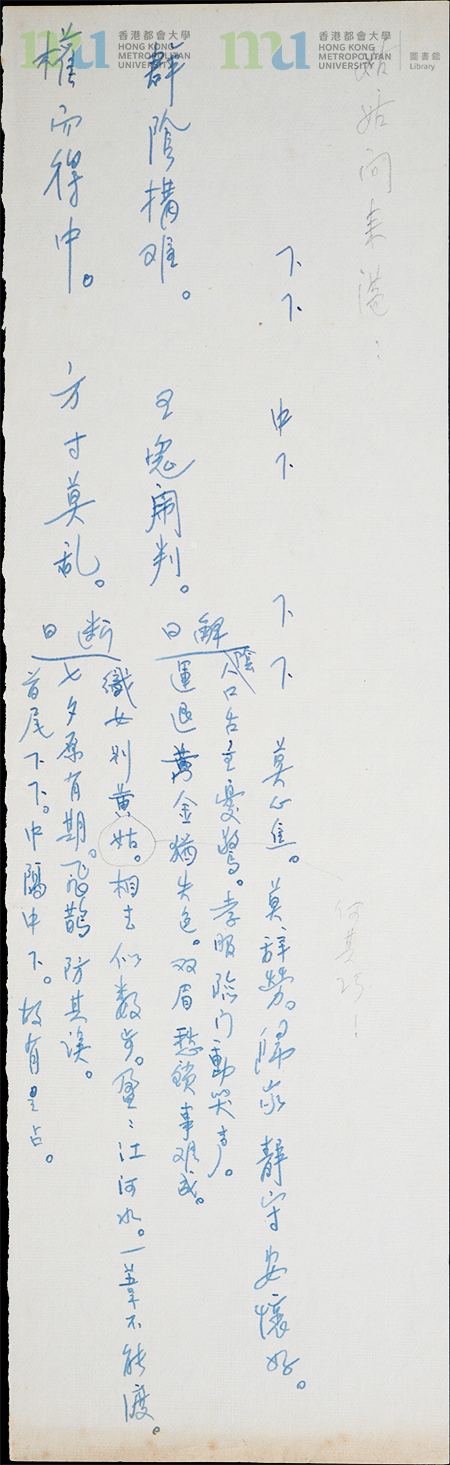 香港都會大學
HONG KONG
METROPOLITAN
UNIVERSITY
香港都會大學
HONG KONG
METROPOLITAN
UNIVERSITY
圖書館
Library
姑姑问来港：
何其巧！
下下 中下 下下 莫心焦。莫辞勞。歸家静守安懷好。
陰人口舌主憂驚。孝服臨门動哭声。
群陰搆难。 判。 解曰
運退黃金猶失色。双眉愁鎖事难成。
權而得中。 方寸莫乱。 断曰
織女别黄姑。相去似数步。盈〻江河水。一葦不能渡。
七夕原有期。飛鵲防其误。
首尾下下。中隔中下。故有是占。